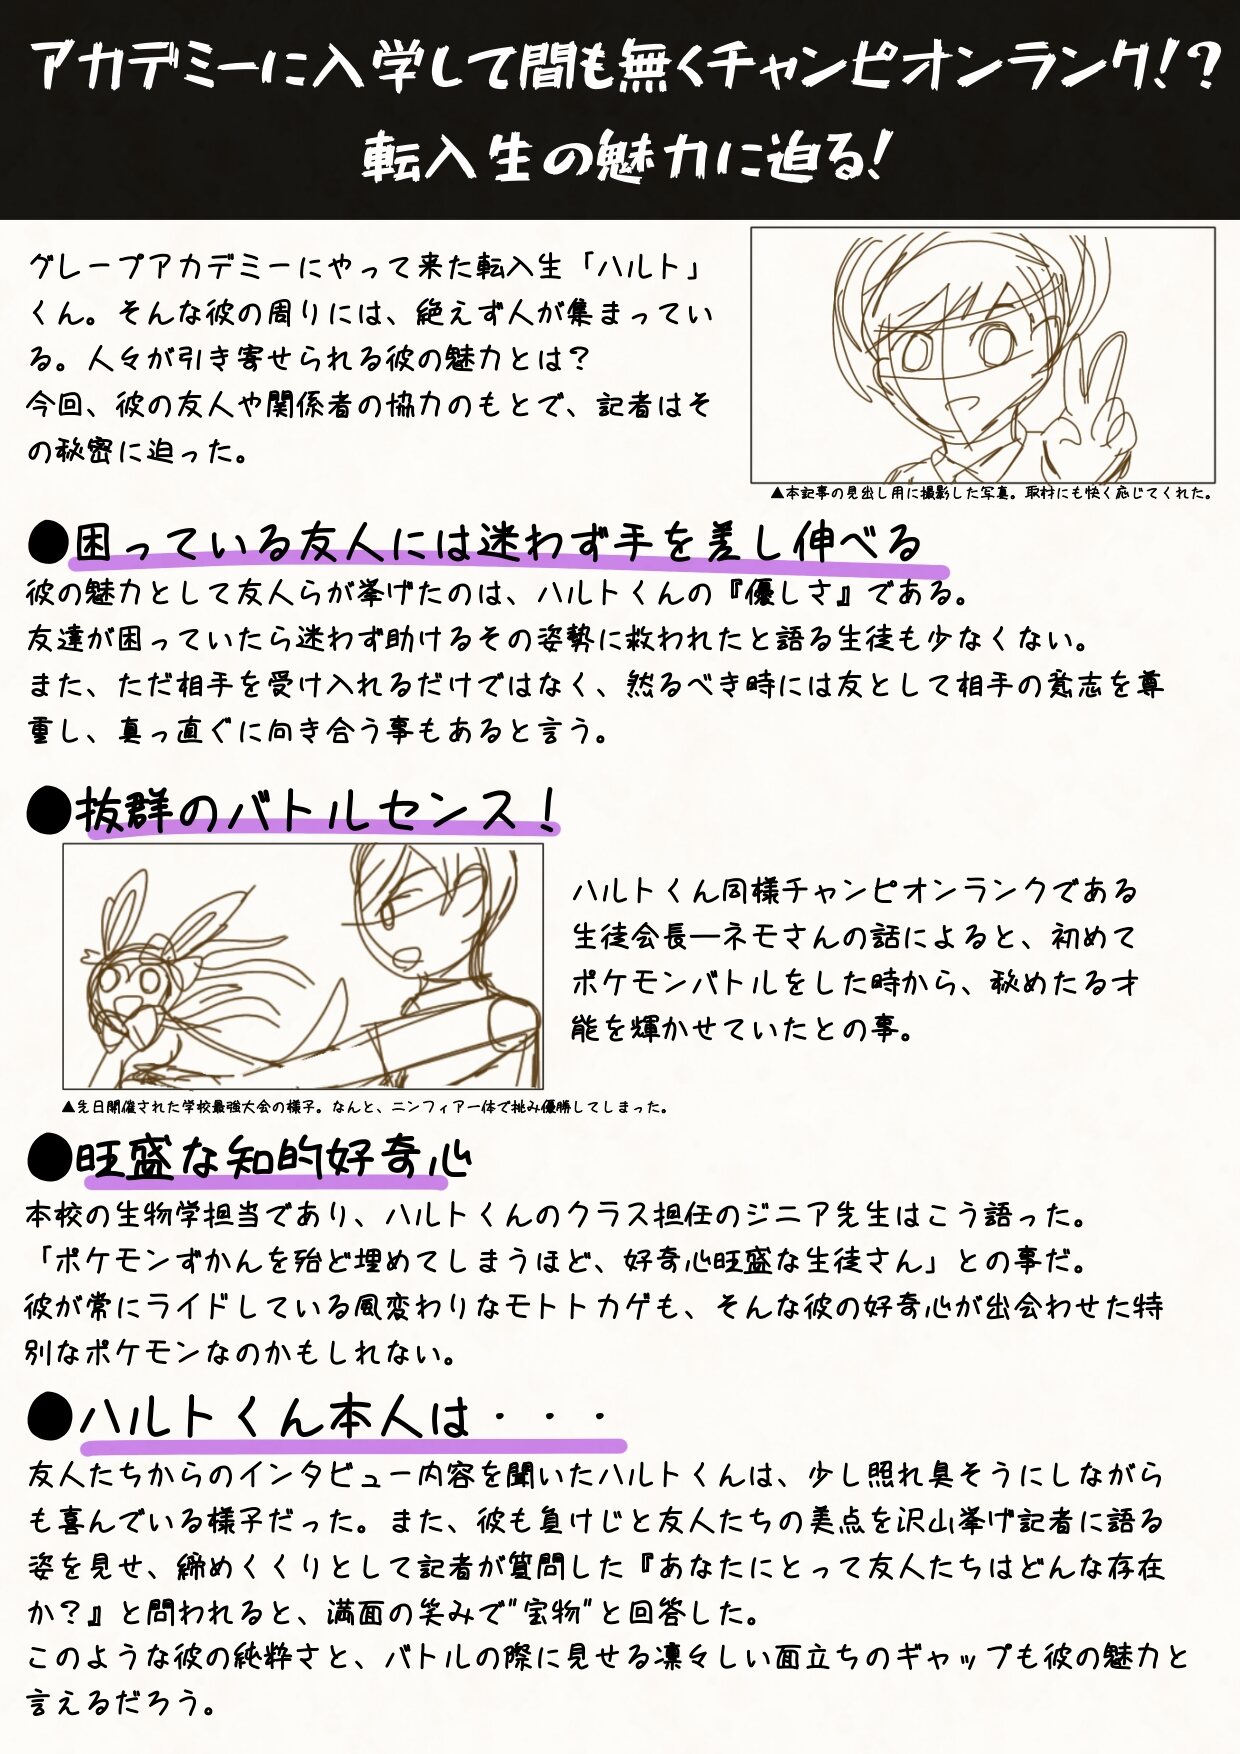 アカデミーに入学して間も無くチャンピオンランク!?
転入生の魅力に迫る!
グレープアカデミーにやって来た転入生「ハルト」
くん。そんな彼の周りには、絶えず人が集まってい
る。人々が引き寄せられる彼の魅力とは?
今回、彼の友人や関係者の協力のもとで、記者はそ
の秘密に迫った。
▲本記事の見出し用に撮影した写真。取材にも快く応じてくれた。
●困っている友人には迷わず手を差し伸べる
彼の魅力として友人らが挙げたのは、ハルトくんの『優しさ』である。
友達が困っていたら迷わず助けるその姿勢に救われたと語る生徒も少なくない。
また、ただ相手を受け入れるだけではなく、然るべき時には友として相手の意志を尊
重し、真っ直ぐに向き合う事もあると言う。
●抜群のバトルセンス!
ハルトくん同様チャンピオンランクである
生徒会長―ネモさんの話によると、初めて
ポケモンバトルをした時から、秘めたる才
能を輝かせていたとの事。
▲先日開催された学校最強大会の様子。なんと、ニンフィア一体で挑み優勝してしまった。
●旺盛な知的好奇心
本校の生物学担当であり、ハルトくんのクラス担任のジニア先生はこう語った。
「ポケモンずかんを殆ど埋めてしまうほど、好奇心旺盛な生徒さん」との事だ。
彼が常にライドしている風変わりなモトトカゲも、そんな彼の好奇心が出会わせた特
別なポケモンなのかもしれない。
●ハルトくん本人は・・・
友人たちからのインタビュー内容を聞いたハルトくんは、少し照れ臭そうにしながら
も喜んでいる様子だった。また、彼も負けじと友人たちの美点を沢山挙げ記者に語る
姿を見せ、締めくくりとして記者が質問した『あなたにとって友人たちはどんな存在
か?』と問われると、満面の笑みで"宝物"と回答した。
このような彼の純粋さと、バトルの際に見せる凛々しい面立ちのギャップも彼の魅力と
言えるだろう。